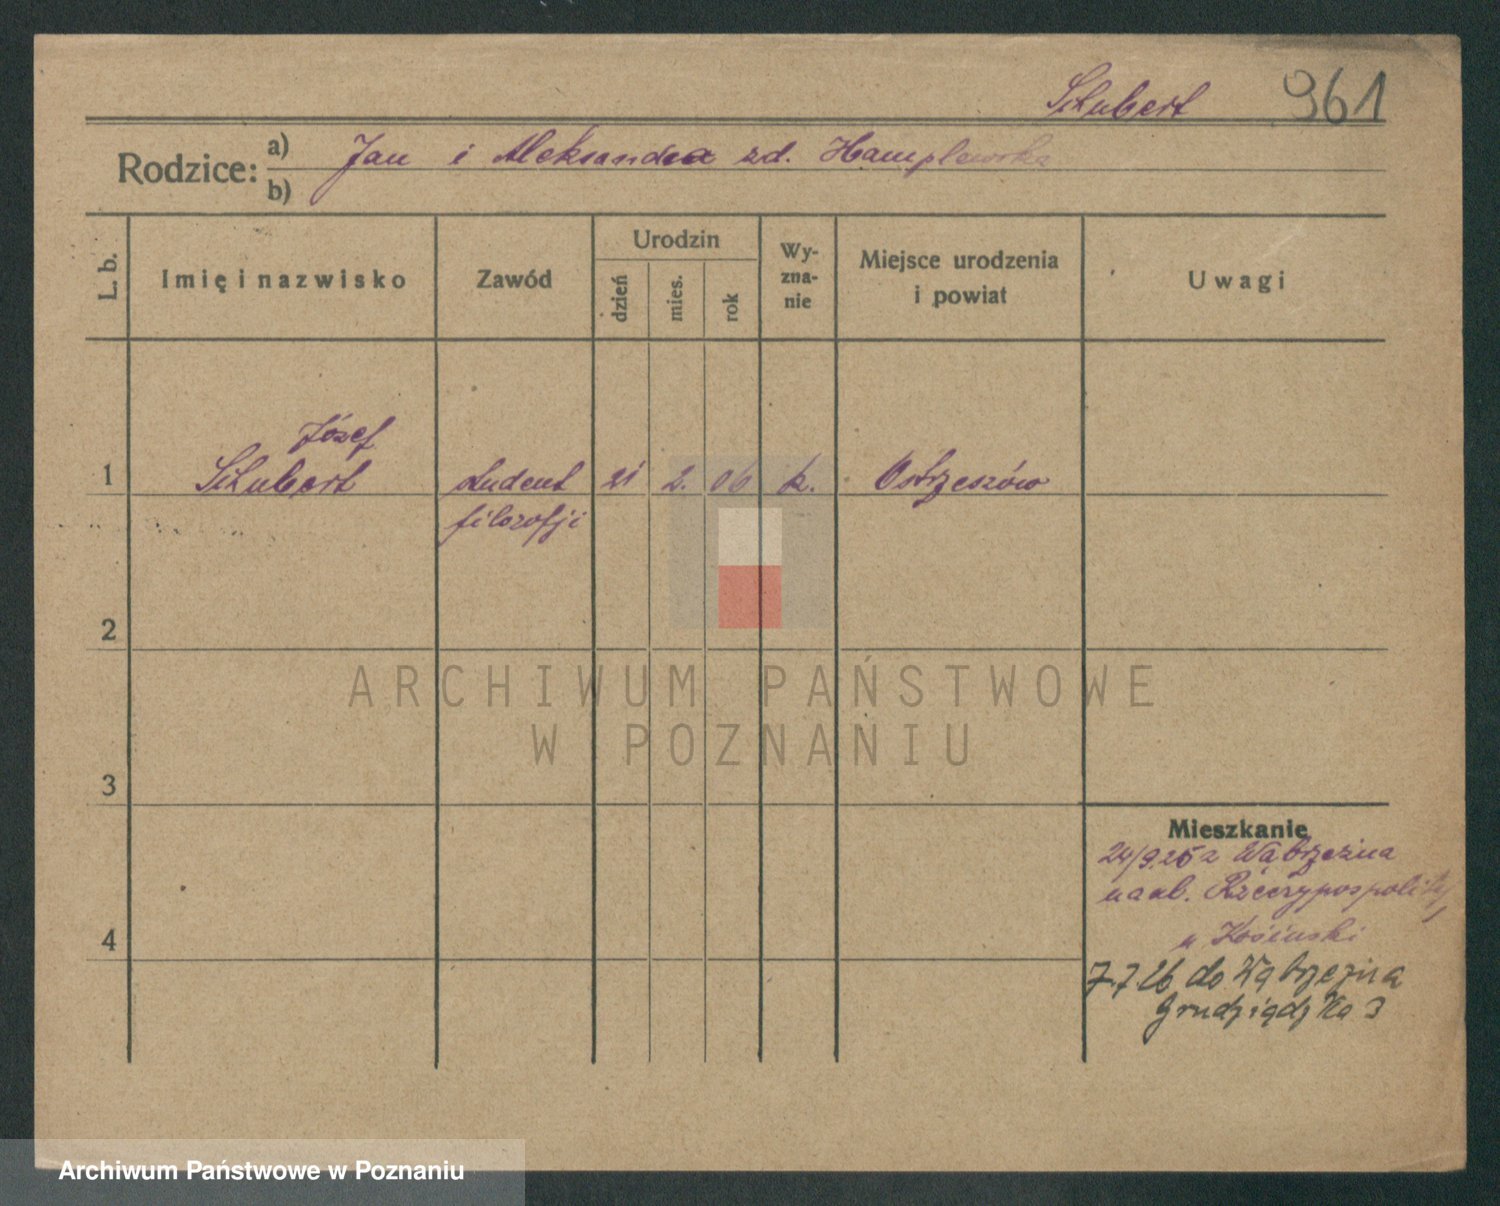 Schubert 961
Rodzice: a) Jan i Aleksandra zd. Hamplewska
b)
L. b. Imię i nazwisko Zawód Urodzin dzień mies. rok Wyzna-nie Miejsce urodzenia i powiat Uwagi
Józef
1 Schubert student 21 2. 06 k. Ostrzeszów
filozofji
2
ARCHIWUM PAŃSTWOWE
W POZNANIU
3
Mieszkanie
24/9.25 z Wąbrzeźna
nadb. Rzeczypospolitej
u Kosiński
4
7.7.26 do Wąbrzeźna
Grudziądzka 3
Archiwum Państwowe w Poznaniu